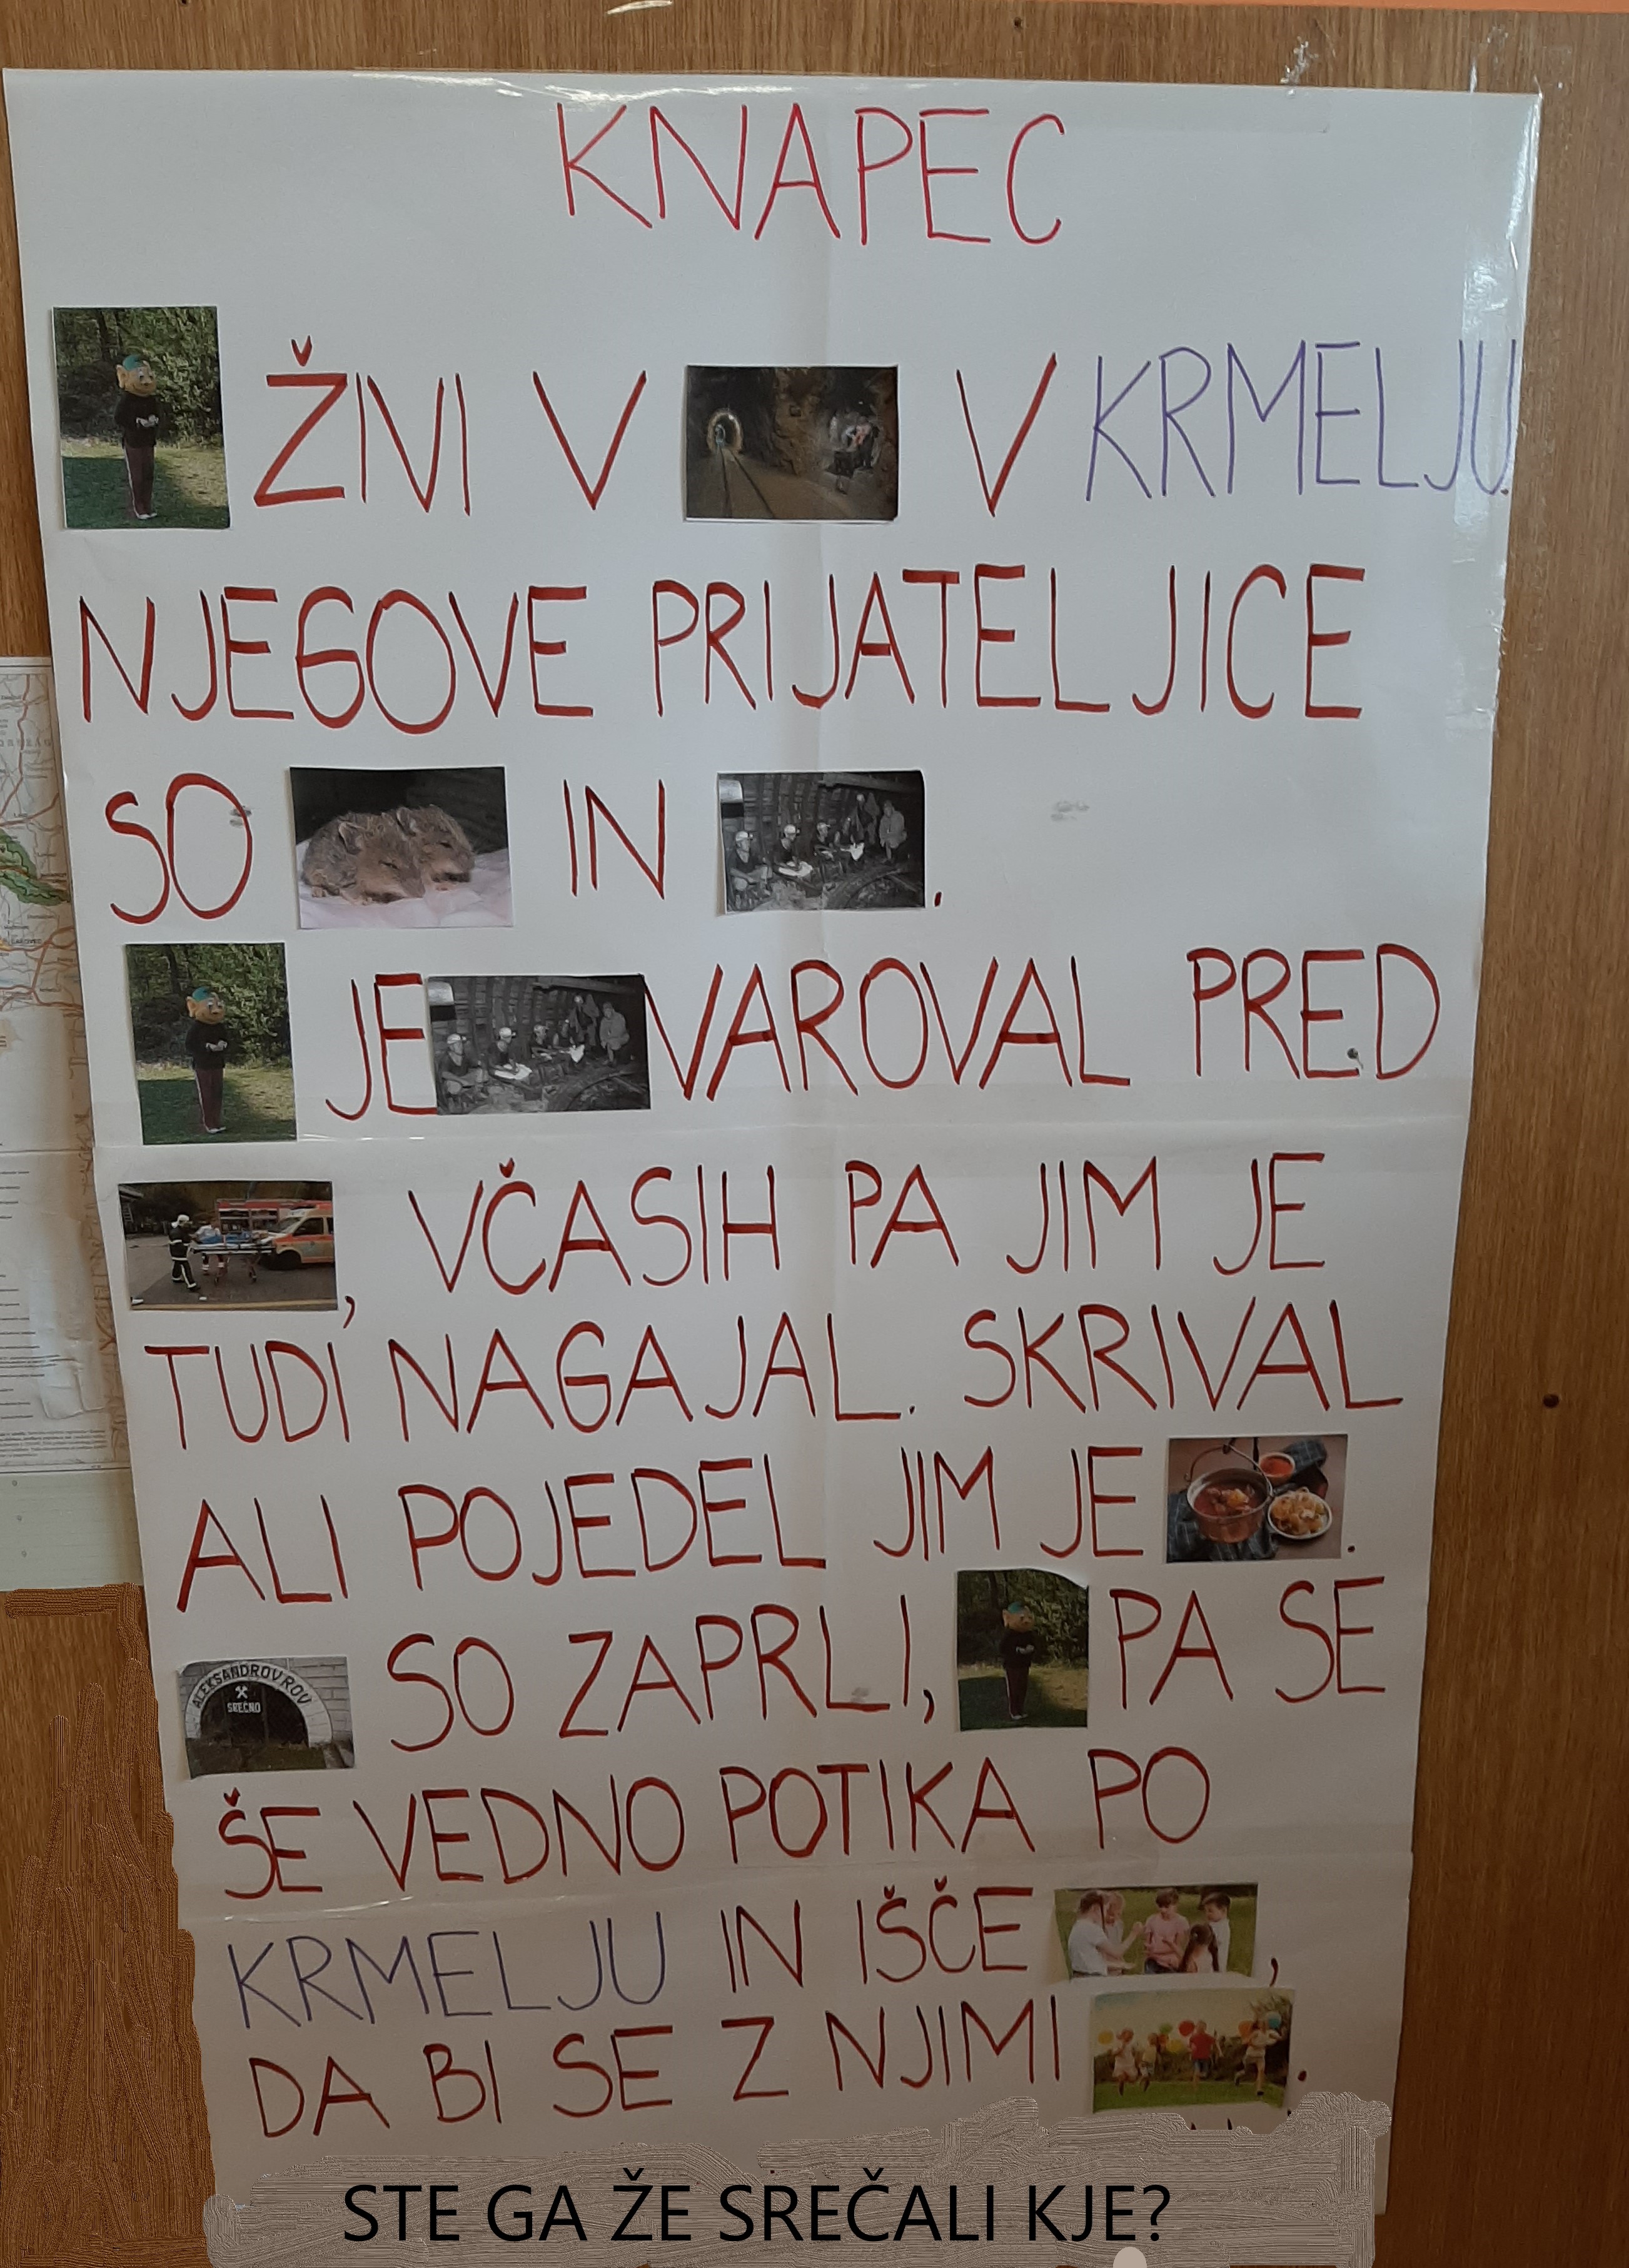 KNAPEC
ŽIVI V V KRMELJU.
NJEGOVE PRIJATELJICE
SO IN .
JE VAROVAL PRED
, VČASIH PA JIM JE
TUDI NAGAJAL. SKRIVAL
ALI POJEDEL JIM JE .
ALEKSANDROV ROV
SREČNO
SO ZAPRLI, PA SE
ŠE VEDNO POTIKA PO
KRMELJU IN IŠČE ,
DA BI SE Z NJIMI .
STE GA ŽE SREČALI KJE?